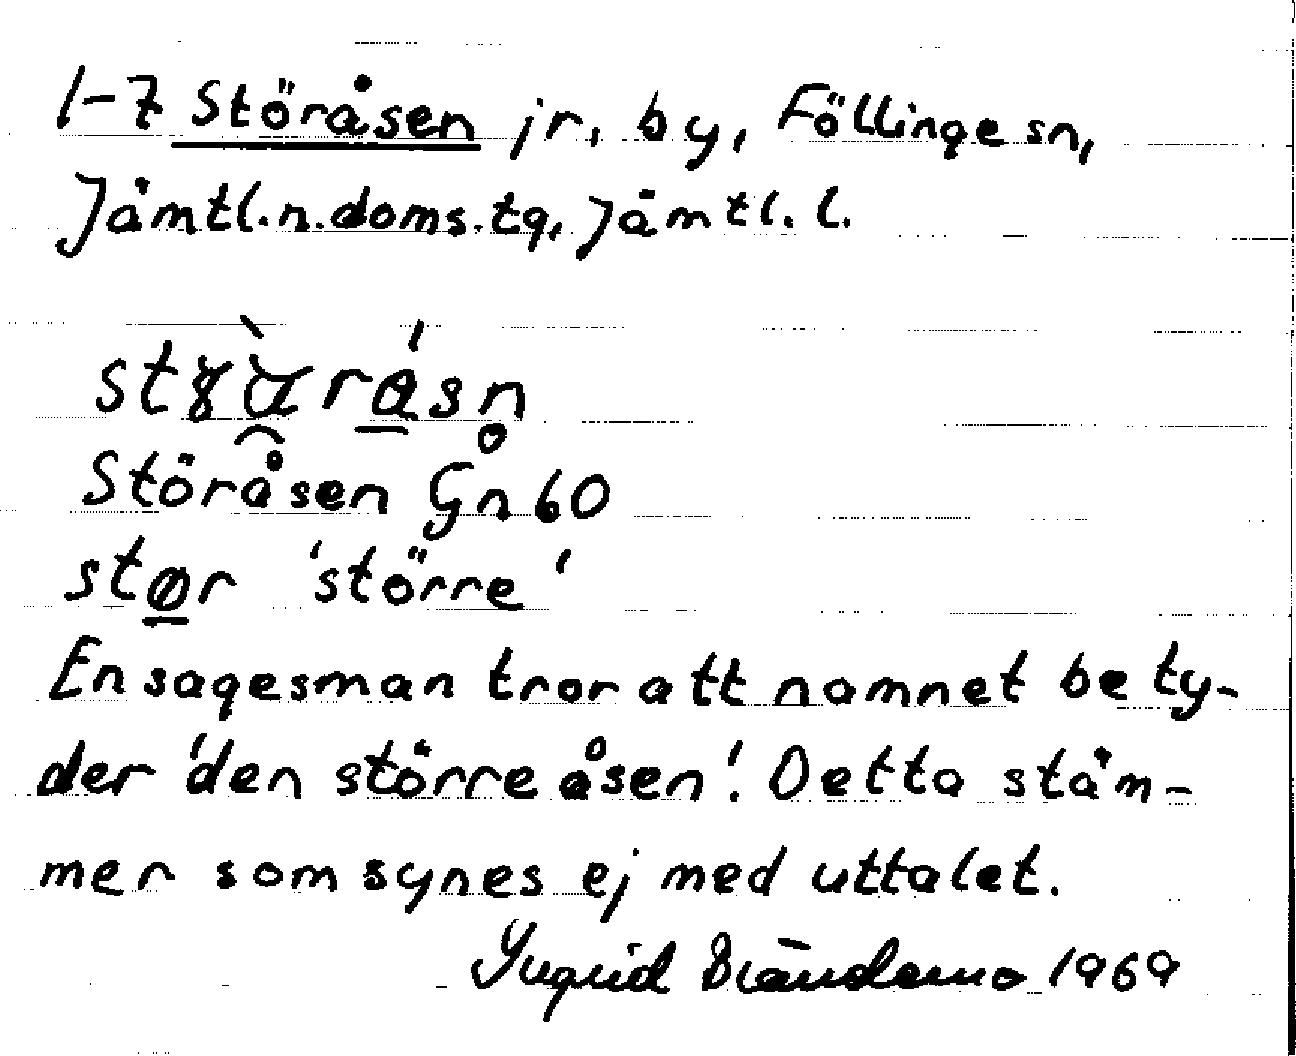 1-7 Störåsen jr, by, Föllinge sn,
Jämtl.n.doms.tg, Jämtl. l.
Störåsen Gn 60
stør 'större'
En sagesman tror att namnet bety-
der 'den större åsen'. Detta stäm-
mer som synes ej med uttalet.
Ingrid Brändemo 1969